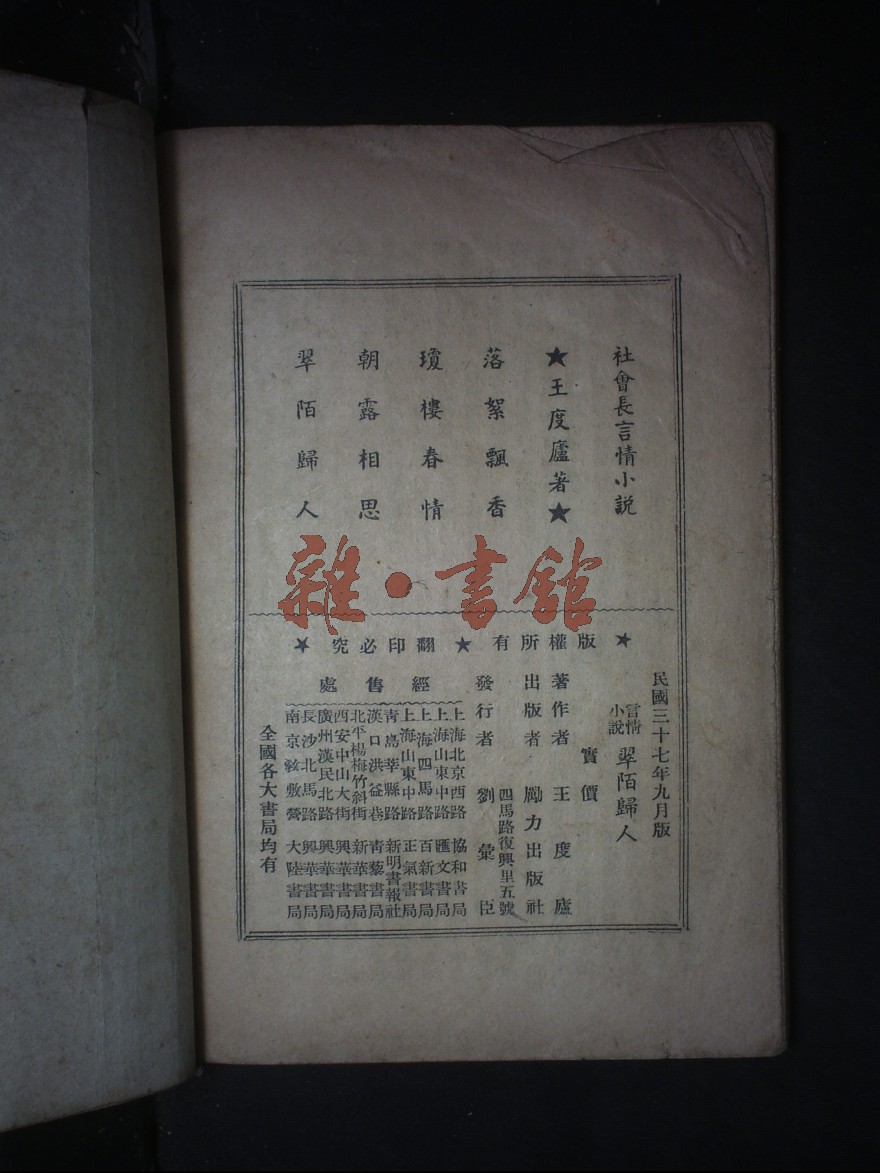 社會長言情小說
★王度廬著★
落絮飄香
瓊樓春情
朝露相思
翠陌歸人
雜·書館
★版權所有★翻印必究★
民國三十七年九月版
言情小說 翠陌歸人
實價
著作者 王度廬
出版者 勵力出版社
四馬路復興里五號
發行者 劉彙臣
經售處
上海北京西路 協和書局
上海山東中路 匯文書局
上海四馬路 百新書局
上海山東中路 正氣書局
青島莘縣路 新明書報社
漢口洪益巷 青藜書局
北平楊梅竹斜街 新華書局
西安中山大街 興華書局
廣州漢民北路 興華書局
長沙北馬路 興華書局
南京敎敷營 大陸書局
全國各大書局均有